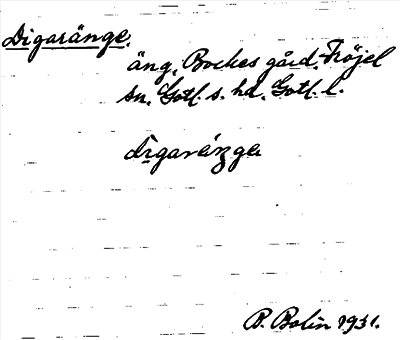 Digaränge.
äng, Bockes gård. Fröjel
sn. Gotl. s. hd. Gotl. l.
digaräŋga
B. Bolin 1931.